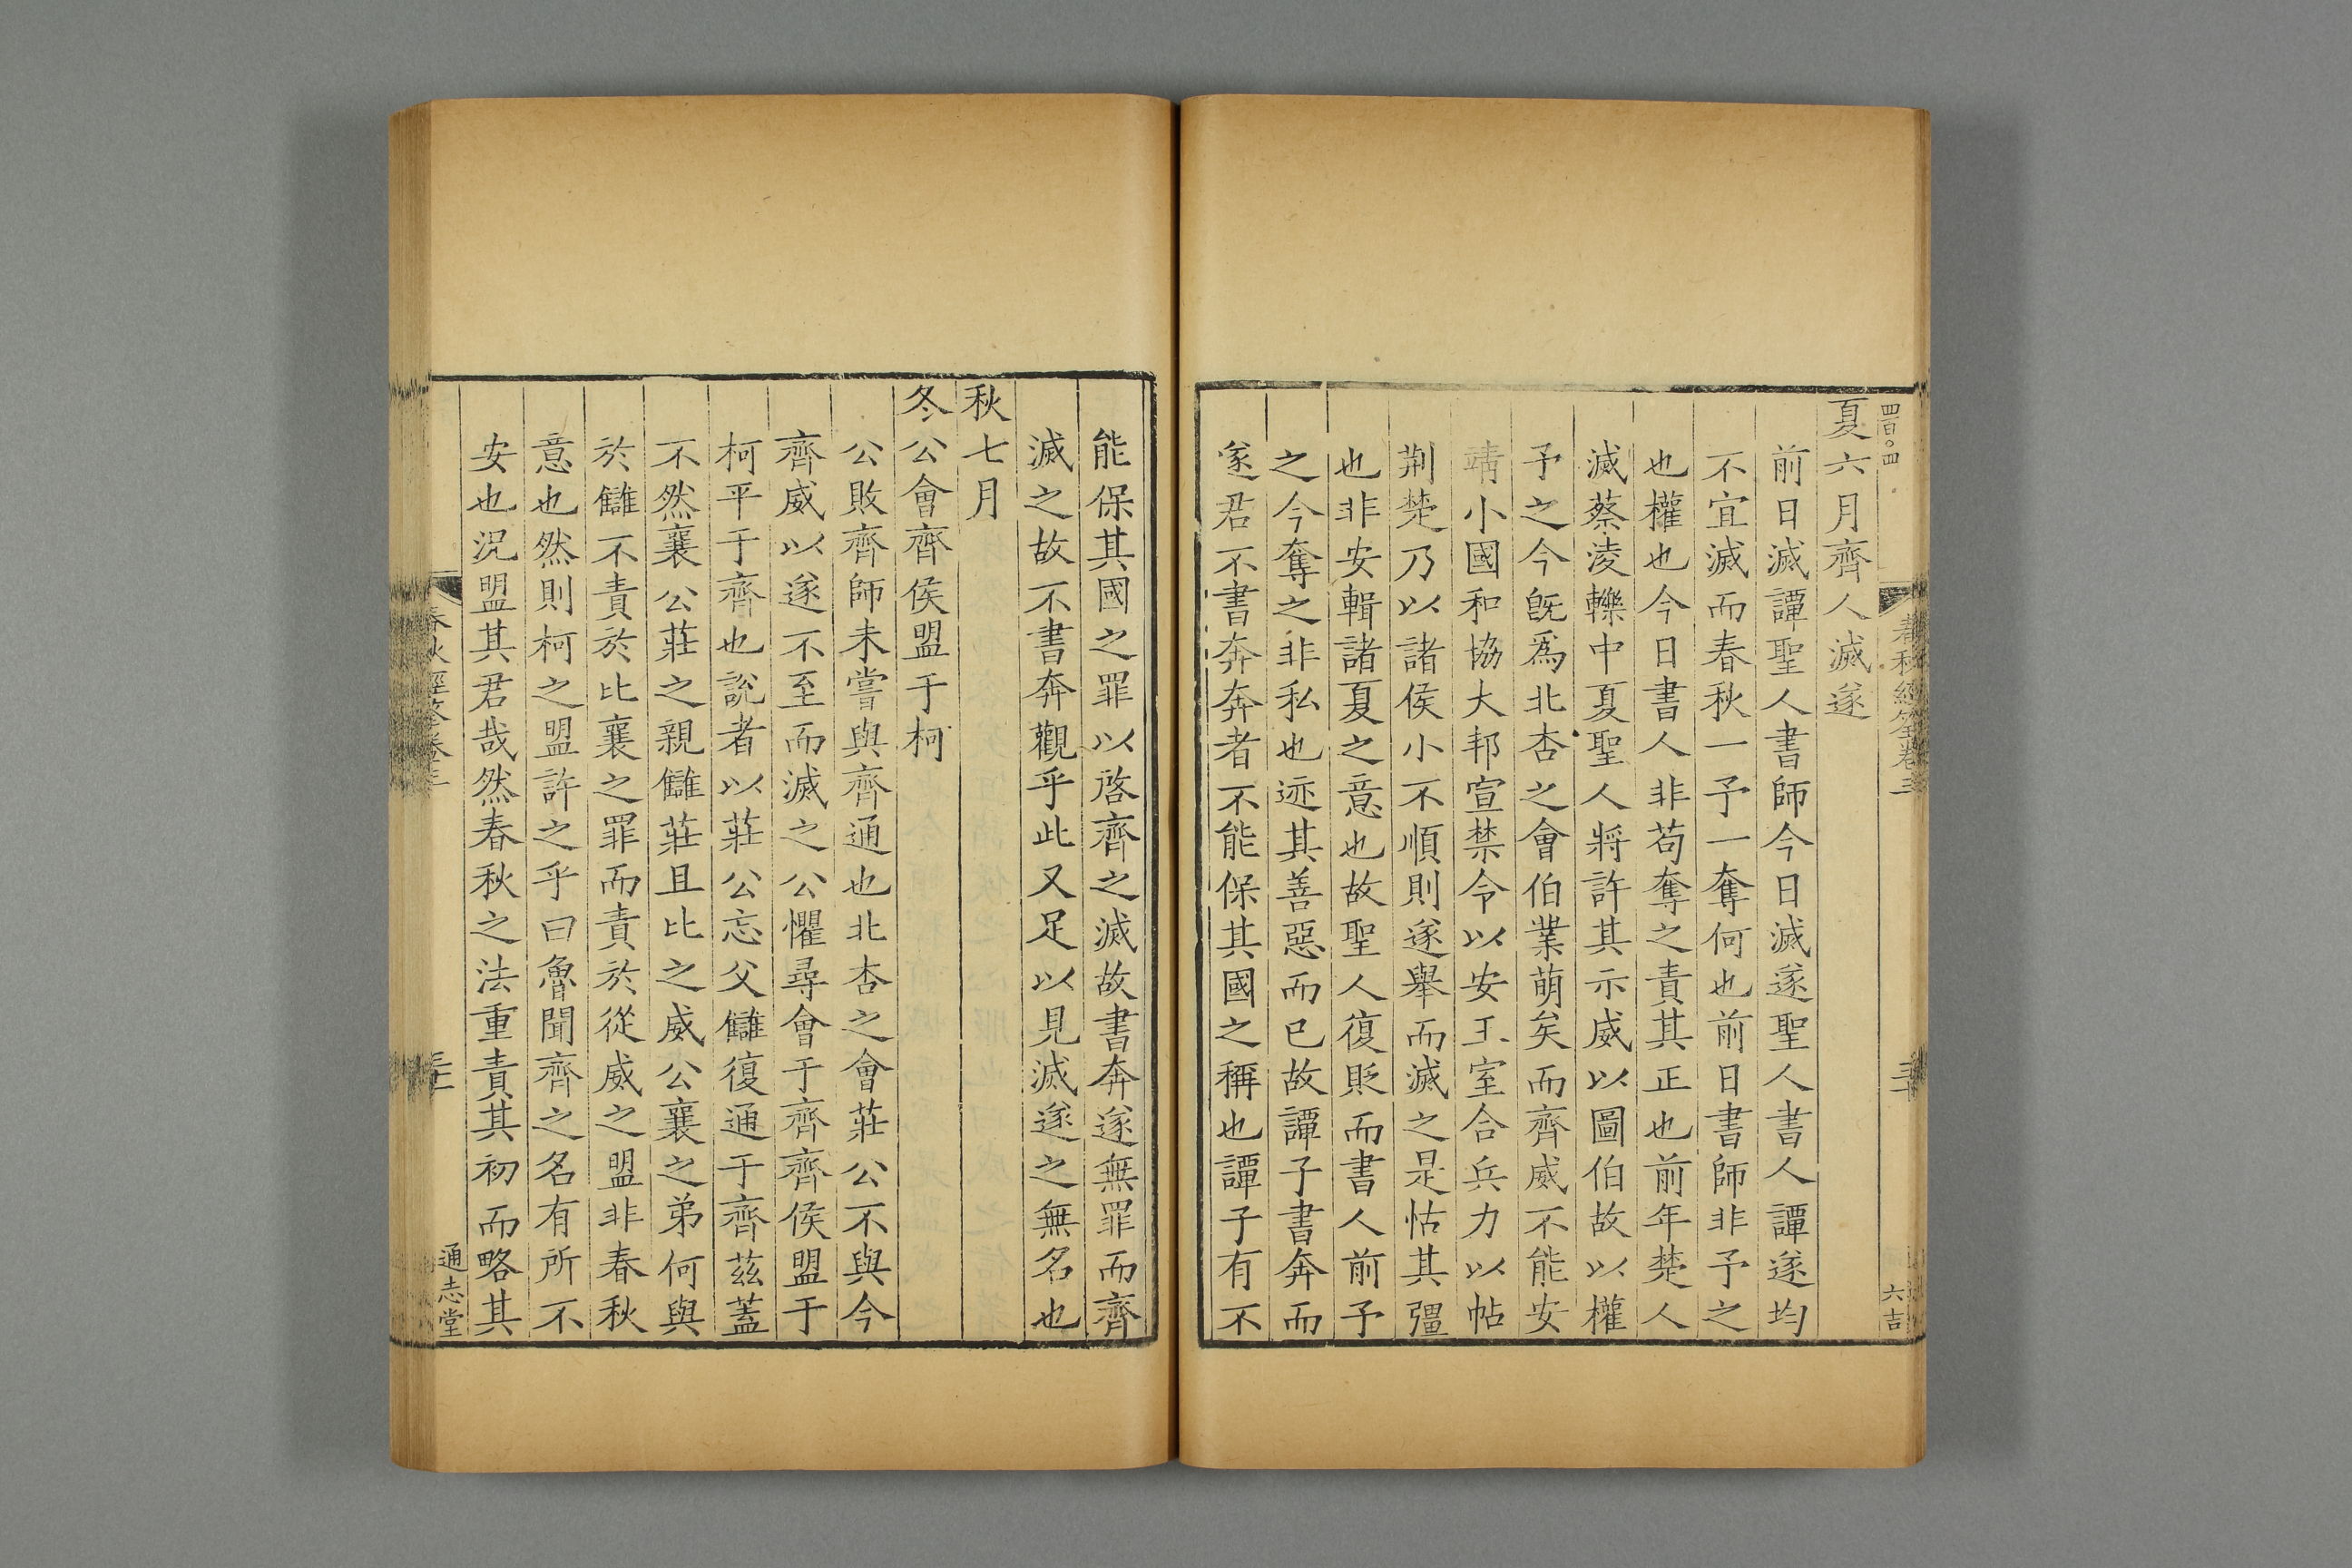 四百〇四
春秋經筌卷三
六吉
夏六月齊人滅遂
前日滅譚聖人書師今日滅遂聖人書人譚遂均
不宜滅而春秋一予一奪何也前日書師非予之
也權也今日書人非苟奪之責其正也前年楚人
滅蔡淩轢中夏聖人將許其示威以圖伯故以權
予之今旣爲北杏之會伯業萌矣而齊威不能安
靖小國和協大邦宣禁令以安王室合兵力以帖
荆楚乃以諸侯小不順則遂舉而滅之是怙其彊
也非安輯諸夏之意也故聖人復貶而書人前予
之今奪之非私也迹其善惡而已故譚子書奔而
遂君不書奔奔者不能保其國之稱也譚子有不
能保其國之罪以啓齊之滅故書奔遂無罪而齊
滅之故不書奔觀乎此又足以見滅遂之無名也
秋七月
冬公會齊侯盟于柯
公敗齊師未嘗與齊通也北杏之會莊公不與今
齊威以遂不至而滅之公懼尋會于齊齊侯盟于
柯平于齊也説者以莊公忘父讎復通于齊茲蓋
不然襄公莊之親讎莊且比之威公襄之弟何與
於讎不責於比襄之罪而責於從威之盟非春秋
意也然則柯之盟許之乎曰魯聞齊之名有所不
安也況盟其君哉然春秋之法重責其初而略其
春秋經筌卷三
通志堂